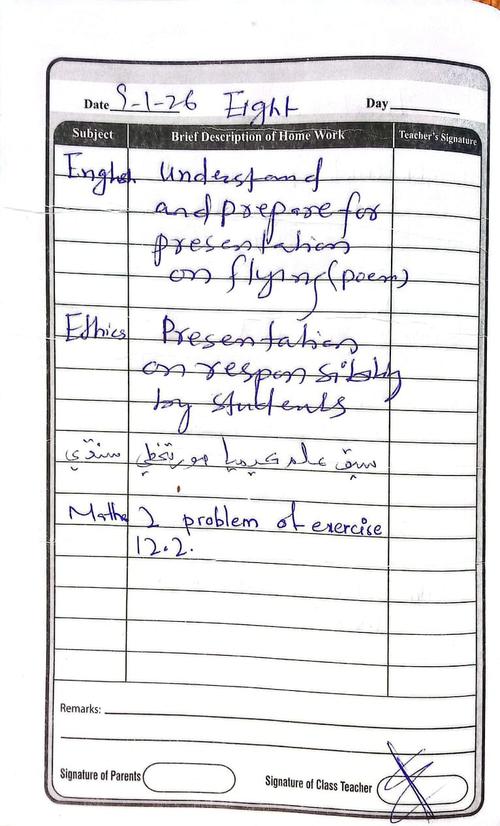 Date 9-1-26 Eight Day
Subject Brief Description of Home Work Teacher's Signature
English Understand
and prepare for
presentation
on flying (poem)
Ethics Presentation
on responsibility
by students
سنڌي سبق علم ڪيميا جو
Maths 2 problem of exercise
12.2.
Remarks:
Signature of Parents Signature of Class Teacher